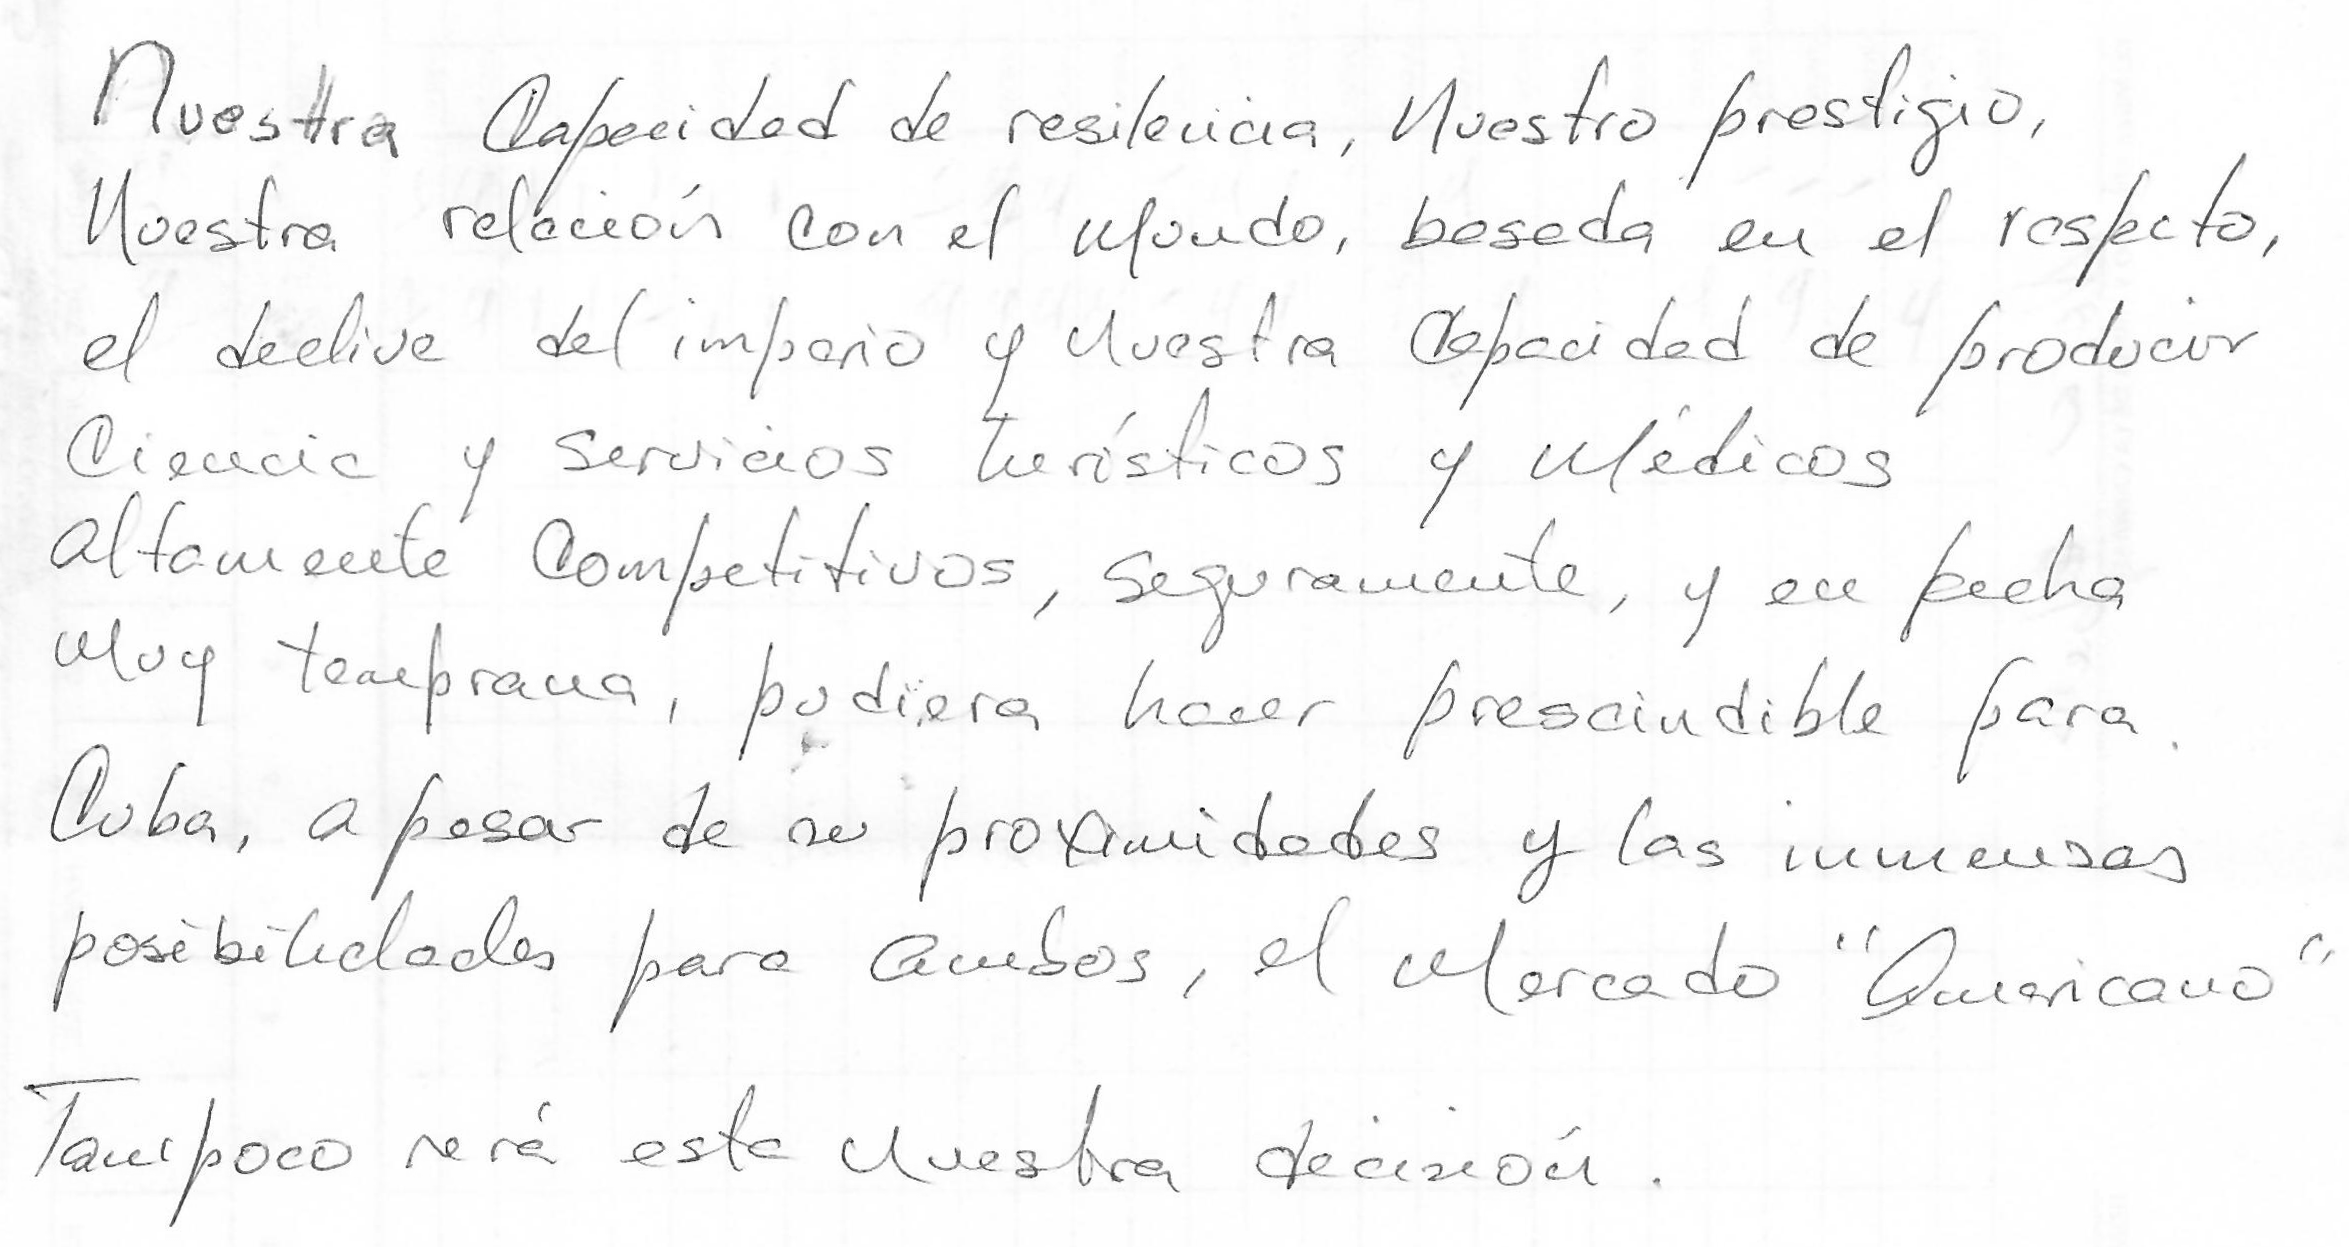 Nuestra Capacidad de resilencia, Nuestro prestigio,
Nuestra relación con el Mundo, basada en el respecto,
el declive del imperio y Nuestra Capacidad de producir
Ciencia y Servicios turísticos y Médicos
altamente Competitivos, seguramente, y en fecha
Muy temprana, pudiera hacer prescindible para
Cuba, a pesar de su proximidades y las inmensas
posibilidades para ambos, el Mercado "Americano"
Tampoco será esta Nuestra decisión.